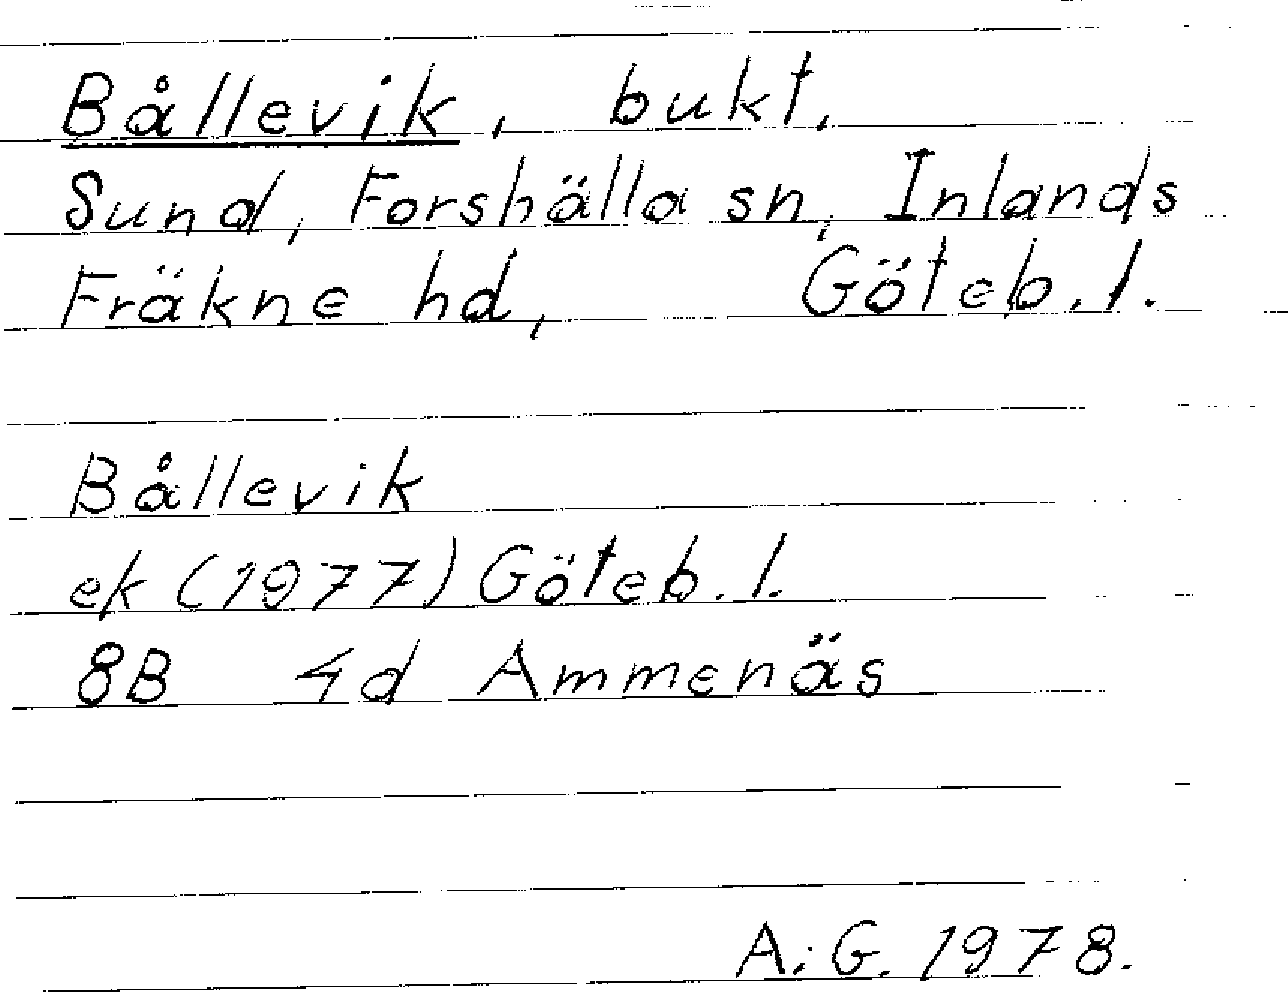 Bållevik, bukt.
Sund, Forshälla sn, Inlands
Fräkne hd, Göteb. l.
Bållevik
ek (1977) Göteb. l.
8B 4d Ammenäs
A. G. 1978.